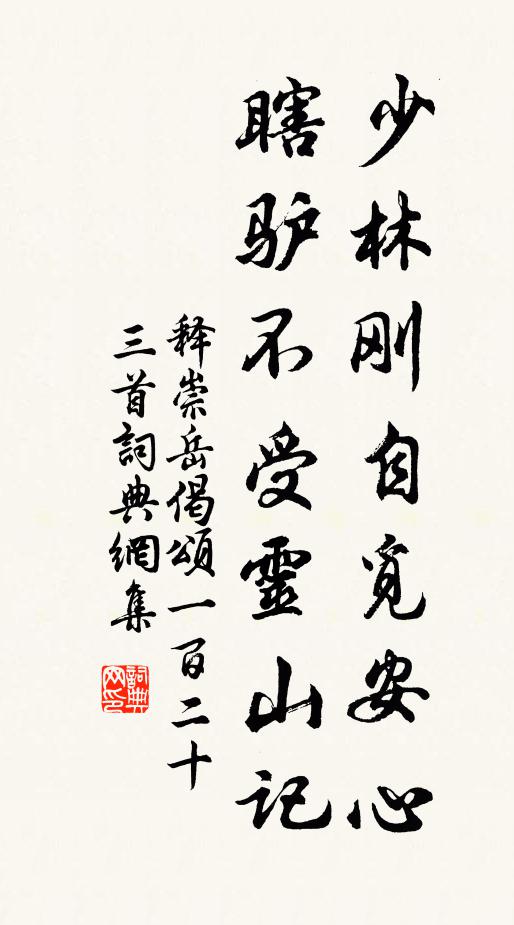 少林刚自觅安心
瞎驴不受靈山记
释崇岳偈頌一百二十
三首詞典網集
詞典网印